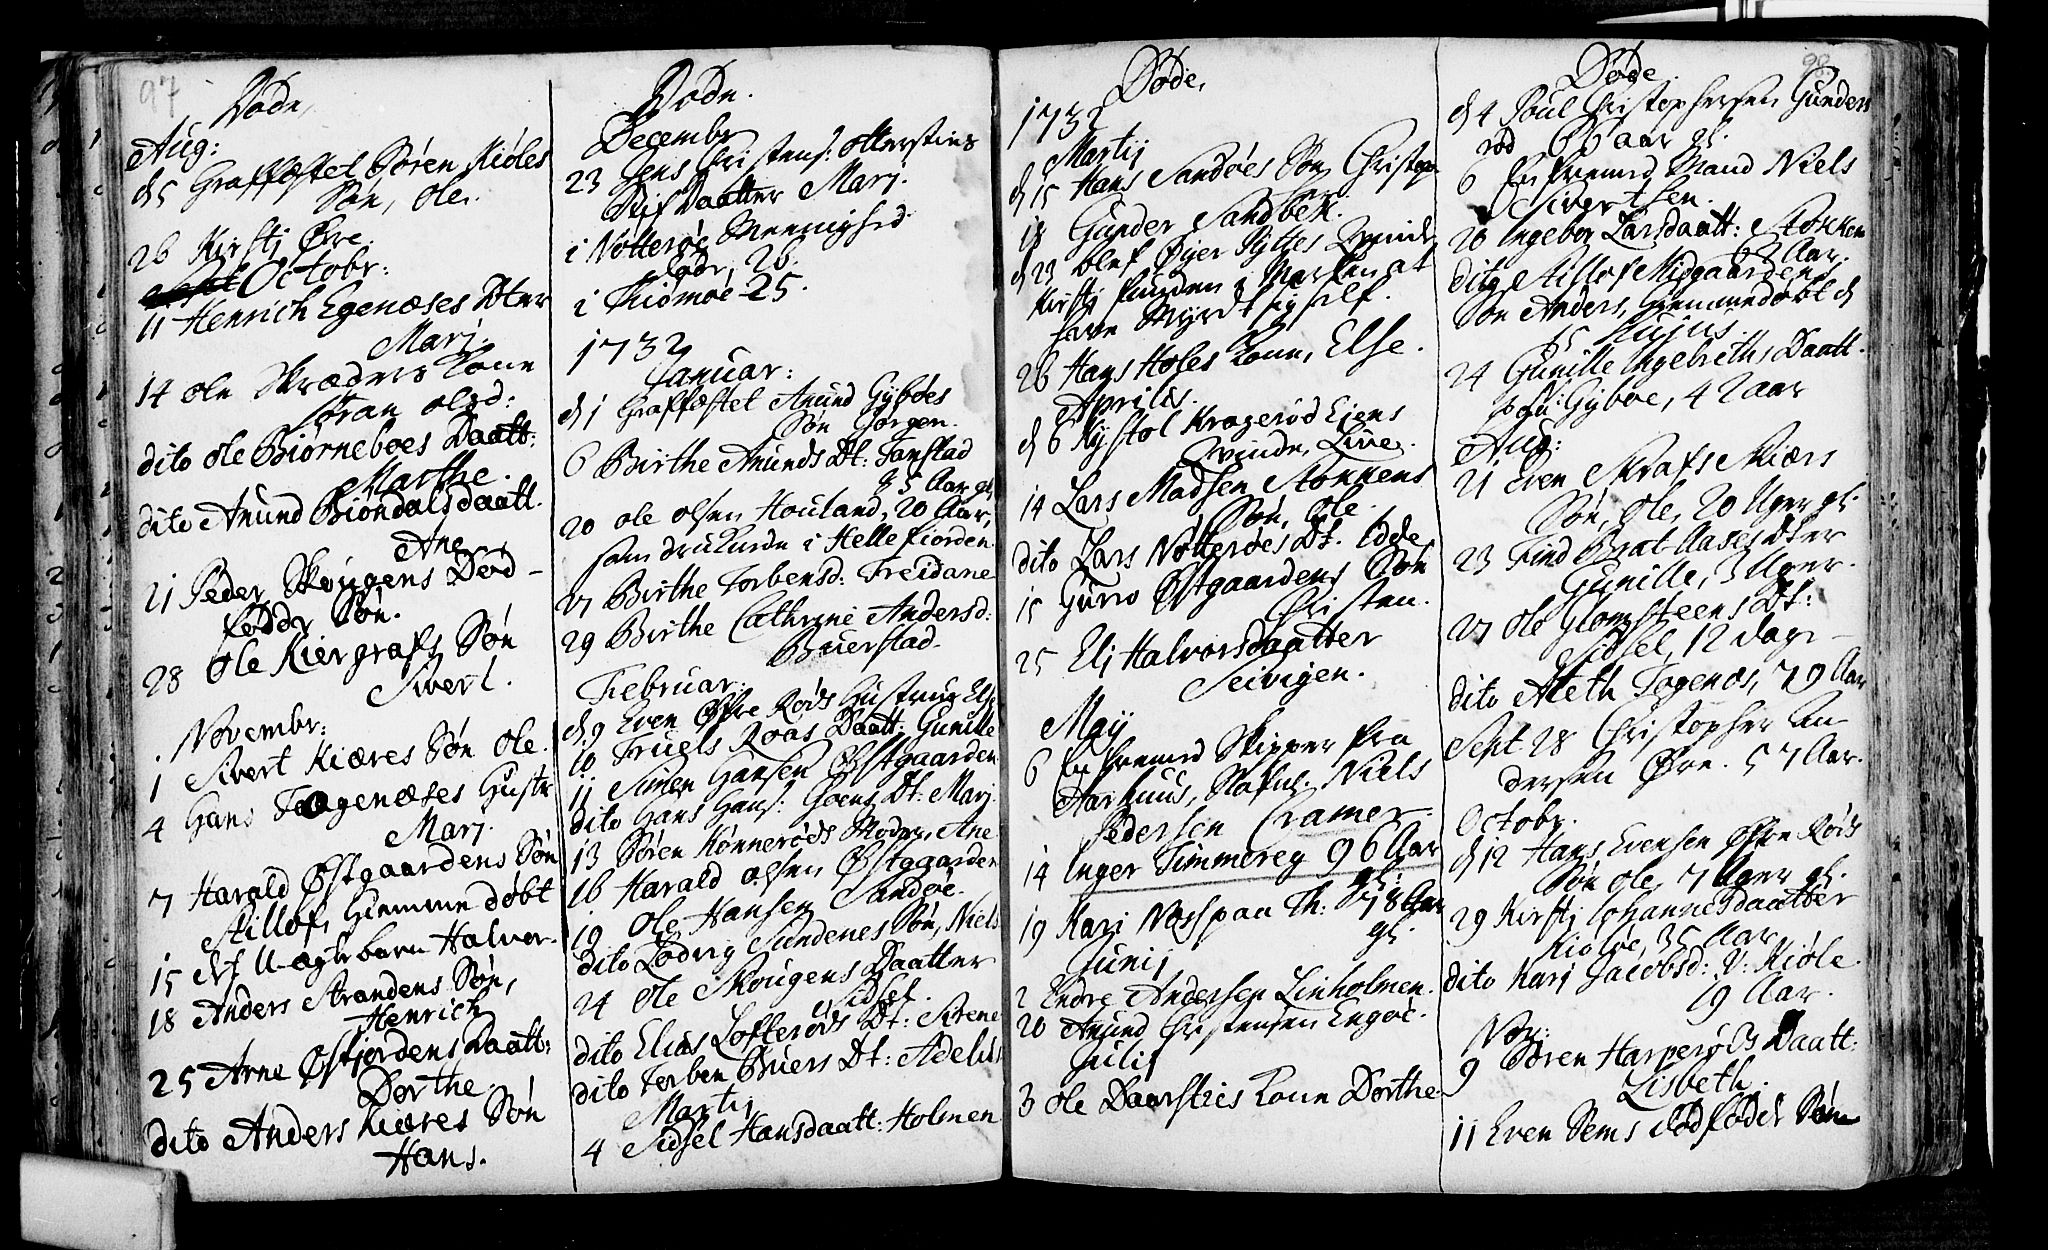 97
Døde,
Aug:
d 5 Graffæstet Søren Kiøles
Søn, Ole.
26 Kirstj Øre
Octobr:
11 Henrich Egenæses Dter
Marj.
14 Ole Skræders Kone
Jøran Olsd:
dito Ole Biørneboes Daatt:
Marthe.
dito Anund Biöndals daatt.
Ane
21 Peder Skougens Død-
fødde Søn.
28 Ole Kiergrafs Søn
Sivert.
Novembr:
1 Sivert Kiæres Søn Ole.
4 Hans Fogenæses Hustr
Marj.
7 Harald Østgaardens Søn
Stillof, hiemme døbt
15 Et U-ægte barn Halvor.
18 Anders Strandens Søn,
Henrich
25 Arne Østjordens Daatt:
Dorthe
dito Anders Kiæres Søn
Hans.
Døde.
Decembr
23 Jens Christens: Ottersties
Stif Daatter Marj.
i Nötteröe Meenighed
døde, 26.
i Thiömöe 25.
1732
Januar:
d 1 Graffæstet Anund Gyböes
Søn Jörgen.
6 Birthe Anunds Dt: Fonstad
85 Aar gl.
20 Ole Olsen Houland, 20 Aar,
som druknede i Hellefiorden.
27 Birthe Torbensd: Freidane
29 Birthe Cathrine Andersd:
Buerstad.
Februar:
d 9 Even Øfre Röds Hustrue Else
10 Truels Roas Daatt: Gunille
11 Simen Hansen Østgaarden
dito Hans Hans: Goens Dt: Marj.
13 Søren Könneröds Moder, Ane
16 Harald Olsen Østgaarden
19 Ole Hansen Sandöe.
dito Lodvig Sundenes Søn, Niels
24 Ole Skougens Daatter
Sidsel.
dito Elias Lofteröds Dt: Sirene
dito Torben Buers Dt: Adelus
Martij
4 Sidsel Hansdaatt: Holmen
Døde,
1732
Martij
d 15 Hans Sandöes Søn Christop
her.
18 Gunder Sandbek.
d 23 Oluf Øyer Hyttes Qvinde
Kirstj funden i Marken at
have Myrdt sig self.
26 Hans Holes Kone, Else.
Aprilis.
d 6 Kystol Krageröd Eiens
Qvinde, Live.
14 Lars Madsen Stokkens
Søn, Ole.
dito Lars Nötteröes Dt. Edde
15 Guro Østgaardens Søn
Christen.
25 Elj Halvorsdaatter
Seivigen.
Maij
6 En fremmed Skipper fra
Aarhuus, Nafnl. Niels
Pedersen Cramer.
14 Inger Timmereg 96 Aar
gl:
19 Karj Næss paa Th: 78 Aar
gl.
Junij
2 Endre Andersen Linholmen.
20 Anund Christensen Engöe.
Julij
3 Ole Daarsties Kone Dorthe
98.
Døde.
d 4 Poul Christophersen Gunders
röd 66 aar gl.
6 En fremmed Mand Niels
Sivertsen.
20 Ingebor Larsdaatt: Stokken
62 Aar.
dito Stillof Midgaardens
Søn Anders, hiemmedöbt d
15 Hujus.
24 Gunille Ingebreths Daatt.
Gyböe, 42 aar
Aug:
21 Even Skrafs Kiærs
Søn, Ole, 20 Uger gl.
23 Find Brat Aases Dter
Gunille, 3 Uger.
27 Ole Glomsteens Dt:
Sidsel, 12 dage
dito Aleth Fogenæs, 79 Aar
Sept 28 Christopher An
dersen Øre. 57 Aar.
Octobr.
d 12 Hans Evensen Øfre Röds
Søn Ole, 7 Uger gl.
29 Kirstj Johannesdaatter
Kiolöe, 35 Aar
dito Karj Jacobsd: V: Kiöle.
19 Aar.
Nov:
9 Søren Harperöds Daatt:
Lisbeth.
11 Even Sems dödfödde Søn